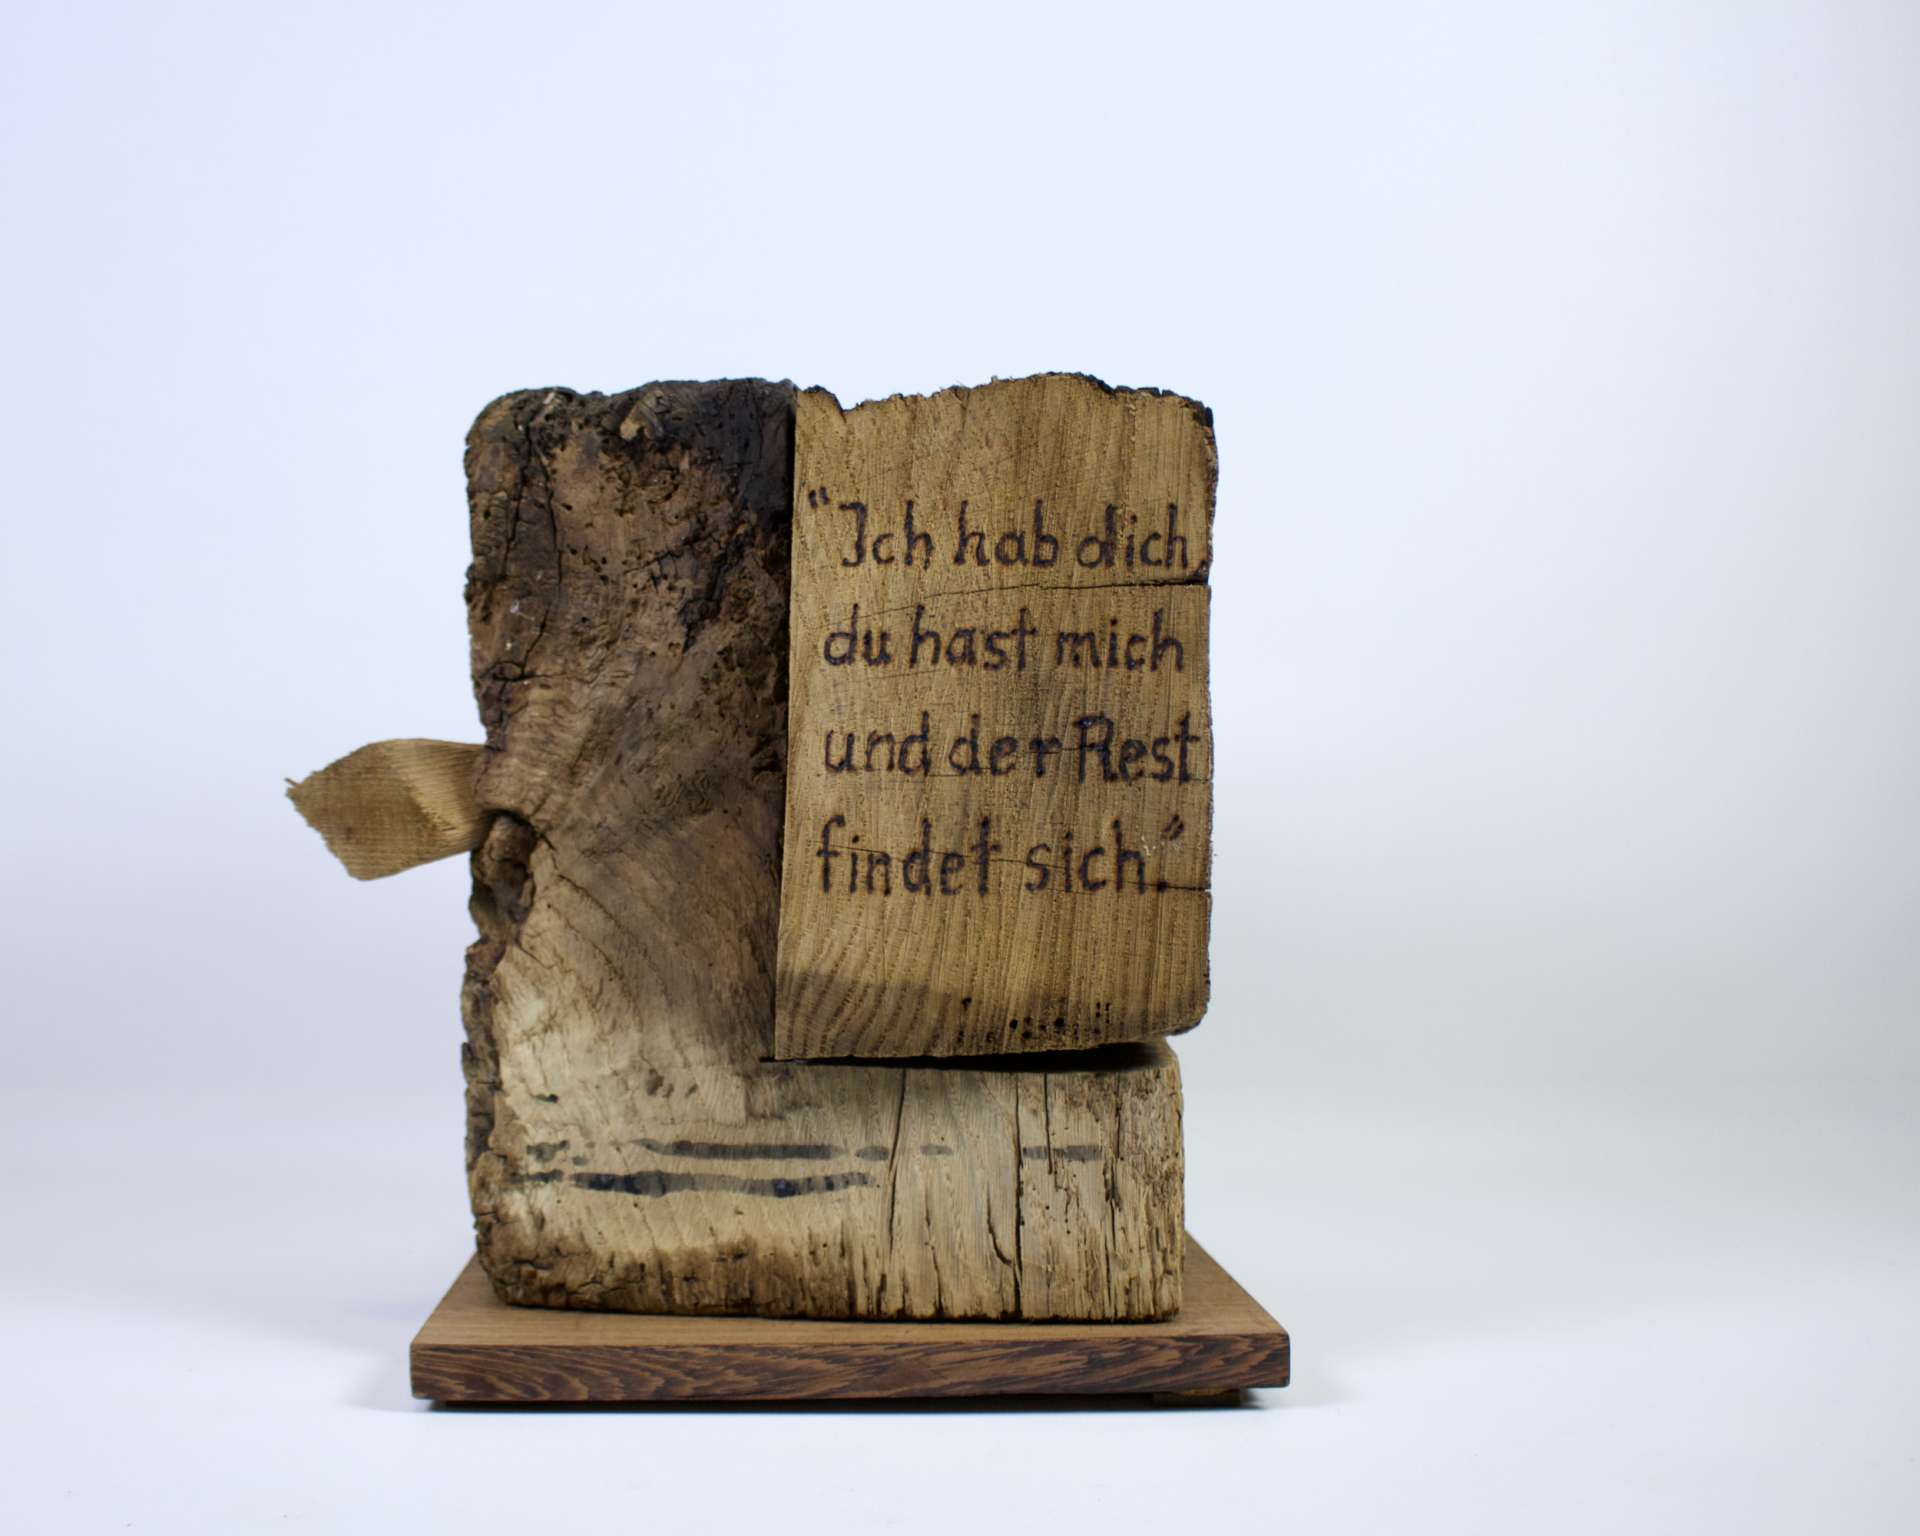 "Ich hab dich,
du hast mich
und der Rest
findet sich."